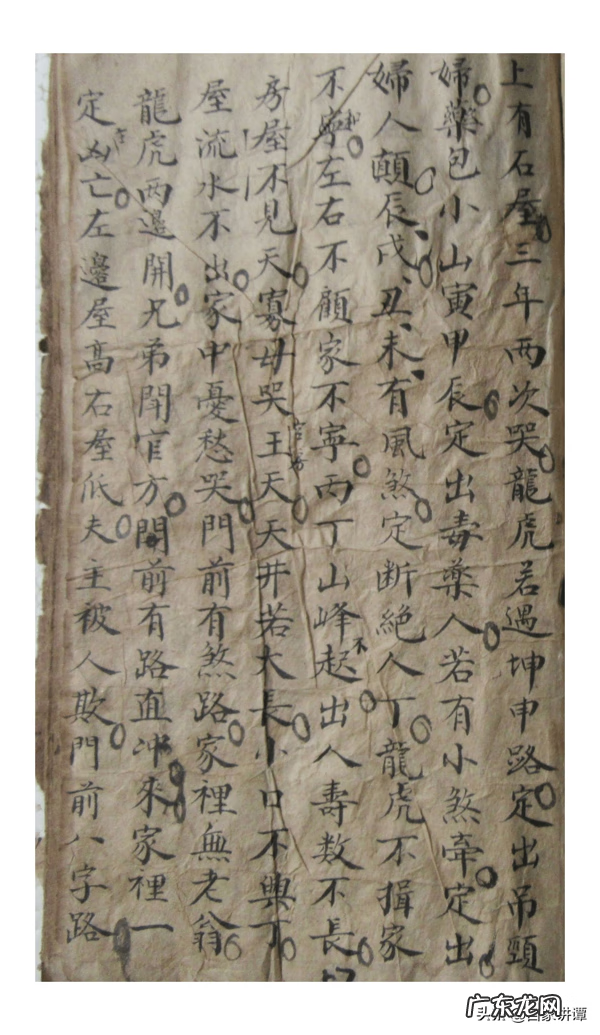 上有石屋三年两次哭龍虎若遇坤申路定出吊頸
婦藥包小山寅甲辰定出毒藥人若有小煞牽定出
婦人顛辰戌丑未有風煞定断絕人丁龍虎不揖家
不和左右不顧家不寧丙丁山峰不起出人壽数不長
房屋不見天寡母哭天天井若大長小口不興丁
屋流水不出家中憂愁哭門前有煞路家裡無老翁
龍虎两邊開兄弟官方前有路直冲來家裡一
定凶亡左邊屋高右屋低夫主被人欺門前八字路
广东龙网